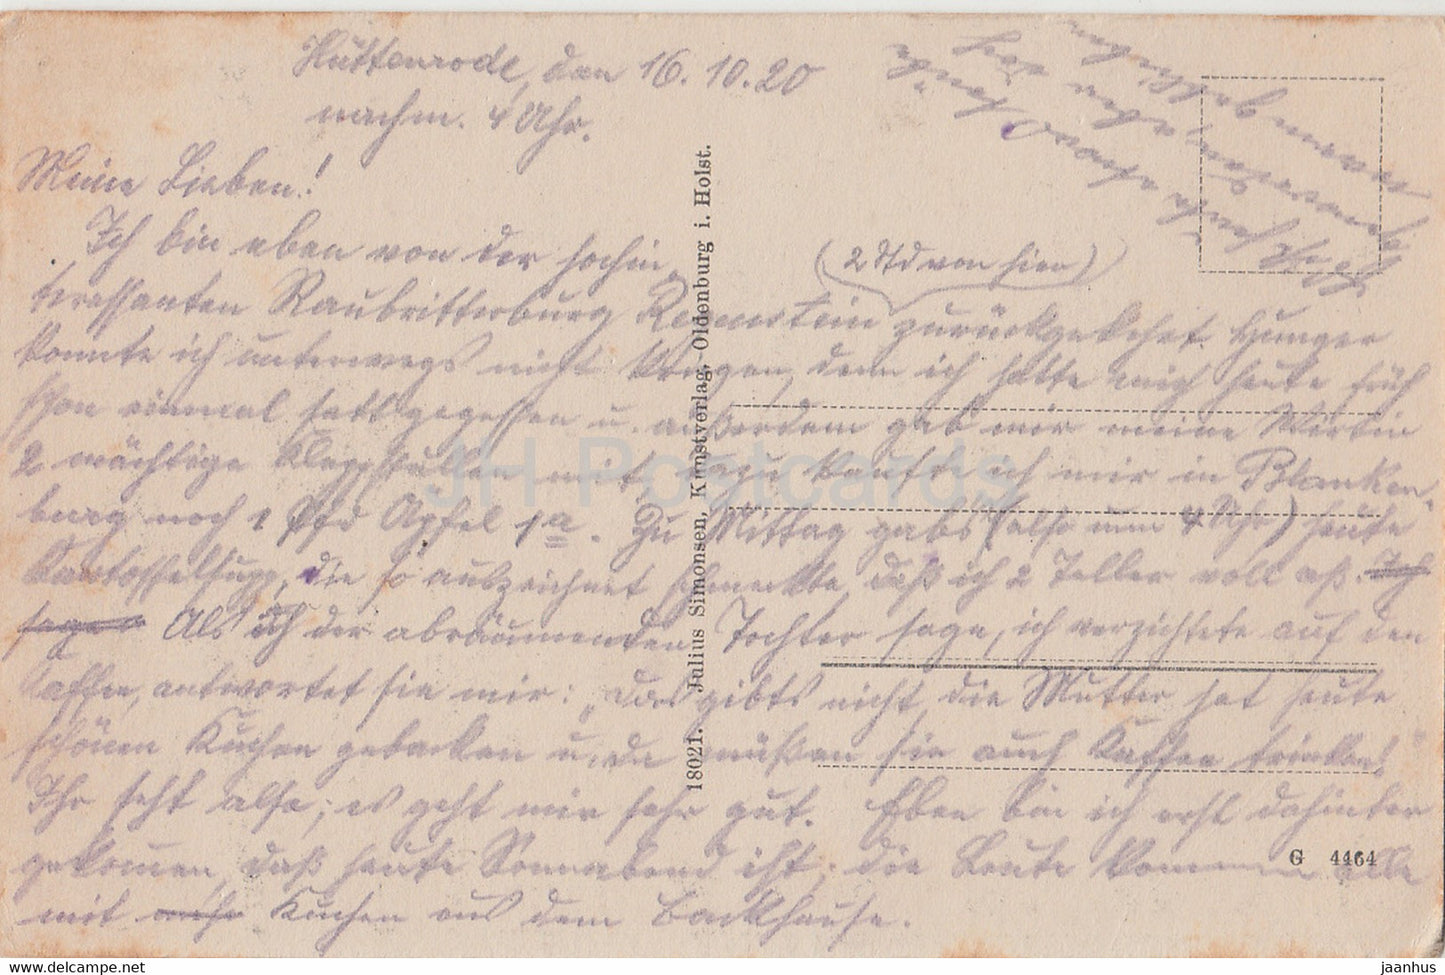 Hüttenrode, den 16.10.20
nachm. 4 Uhr.
Meine Lieben!
Ich bin eben von der hochin-
teressanten Raubritterburg Regenstein zurückgekehrt. Hunger
(2 Std von hier)
konnte ich unterwegs nicht kriegen, denn ich hatte mich heute früh
schon einmal satt gegessen u. außerdem gab mir meine Wirtin
2 mächtige Klappstullen mit, dazu kaufte ich mir in Blanken-
burg noch 1 Pfd Äpfel 1a. Zu Mittag gabs (also um 4 Uhr) heute
Kartoffelsupp, die so ausgezeichnet schmeckte, daß ich 2 Teller voll aß. Ich
sage Als ich der abräumenden Tochter sage, ich verzichtete auf den
Kaffee, antwortet sie mir: "Das gibts nicht, die Mutter hat heute
schönen Kuchen gebacken u. da müßen sie auch Kaffee trinken!"
Ihr seht also, es geht mir sehr gut. Eben bin ich erst dahinter
gekommen, daß heute Sonnabend ist; die Leute kommen alle
mit mehr Kuchen aus dem Backhause.
18021. Julius Simonsen, Kunstverlag, Oldenburg i. Holst.
G 4464
JH Postcards
www.delcampe.net
jaanhus